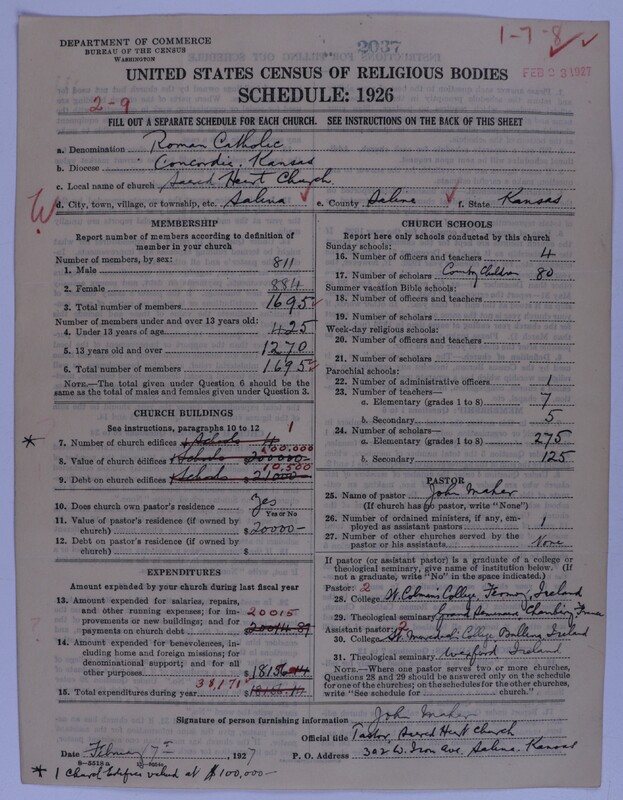 DEPARTMENT OF COMMERCE
BUREAU OF THE CENSUS
WASHINGTON
2037
1-7-8
FEB 23 1927
UNITED STATES CENSUS OF RELIGIOUS BODIES
SCHEDULE: 1926
2-9
FILL OUT A SEPARATE SCHEDULE FOR EACH CHURCH. SEE INSTRUCTIONS ON THE BACK OF THIS SHEET
a. Denomination Roman Catholic
b. Diocese Concordia, Kansas
c. Local name of church Sacred Heart Church
d. City, town, village, or township, etc. Salina e. County Saline f. State Kansas
MEMBERSHIP
Report number of members according to definition of member in your church
Number of members, by sex:
1. Male 811
2. Female 884
3. Total number of members 1695
Number of members under and over 13 years old:
4. Under 13 years of age 425
5. 13 years old and over 1270
6. Total number of members 1695
NOTE.—The total given under Question 6 should be the same as the total of males and females given under Question 3.
CHURCH BUILDINGS
See instructions, paragraphs 10 to 12
1
* 7. Number of church edifices & Schools 4
100,000
8. Value of church edifices & Schools 200000-
10,500
9. Debt on church edifices & Schools $ 21000-
10. Does church own pastor's residence Yes
Yes or No
11. Value of pastor's residence (if owned by church) $ 20000-
12. Debt on pastor's residence (if owned by church) $
EXPENDITURES
Amount expended by your church during last fiscal year
13. Amount expended for salaries, repairs, and other running expenses; for improvements or new buildings; and for payments on church debt 20015
14. Amount expended for benevolences, including home and foreign missions; for denominational support; and for all other purposes $ 18156
38,171
15. Total expenditures during year $
CHURCH SCHOOLS
Report here only schools conducted by this church
Sunday schools:
16. Number of officers and teachers 4
17. Number of scholars Country Children 80
Summer vacation Bible schools:
18. Number of officers and teachers
19. Number of scholars
Week-day religious schools:
20. Number of officers and teachers
21. Number of scholars
Parochial schools:
22. Number of administrative officers 1
23. Number of teachers—
a. Elementary (grades 1 to 8) 7
b. Secondary 5
24. Number of scholars—
a. Elementary (grades 1 to 8) 275
b. Secondary 125
PASTOR
25. Name of pastor John Maher
(If church has no pastor, write "None")
26. Number of ordained ministers, if any, employed as assistant pastors 1
27. Number of other churches served by the pastor or his assistants None
If pastor (or assistant pastor) is a graduate of a college or theological seminary, give name of institution below. (If not a graduate, write "No" in the space indicated.)
Pastor: 2
28. College St Colman's College Fermoy, Ireland
29. Theological seminary Grand Seminaire
Assistant pastor: 2
30. College College Ireland
31. Theological seminary Wexford Ireland
NOTE.—Where one pastor served two or more churches, Questions 28 and 29 should be answered only on the schedule for one of the churches; on the schedules for the other churches, write "See schedule for church."
Signature of person furnishing information John Maher
Official title Pastor, Sacred Heart Church
Date February 7th, 1927 P. O. Address 302 W. Iron Ave. Salina. Kansas
* 1 Church Edifice valued at $100,000-